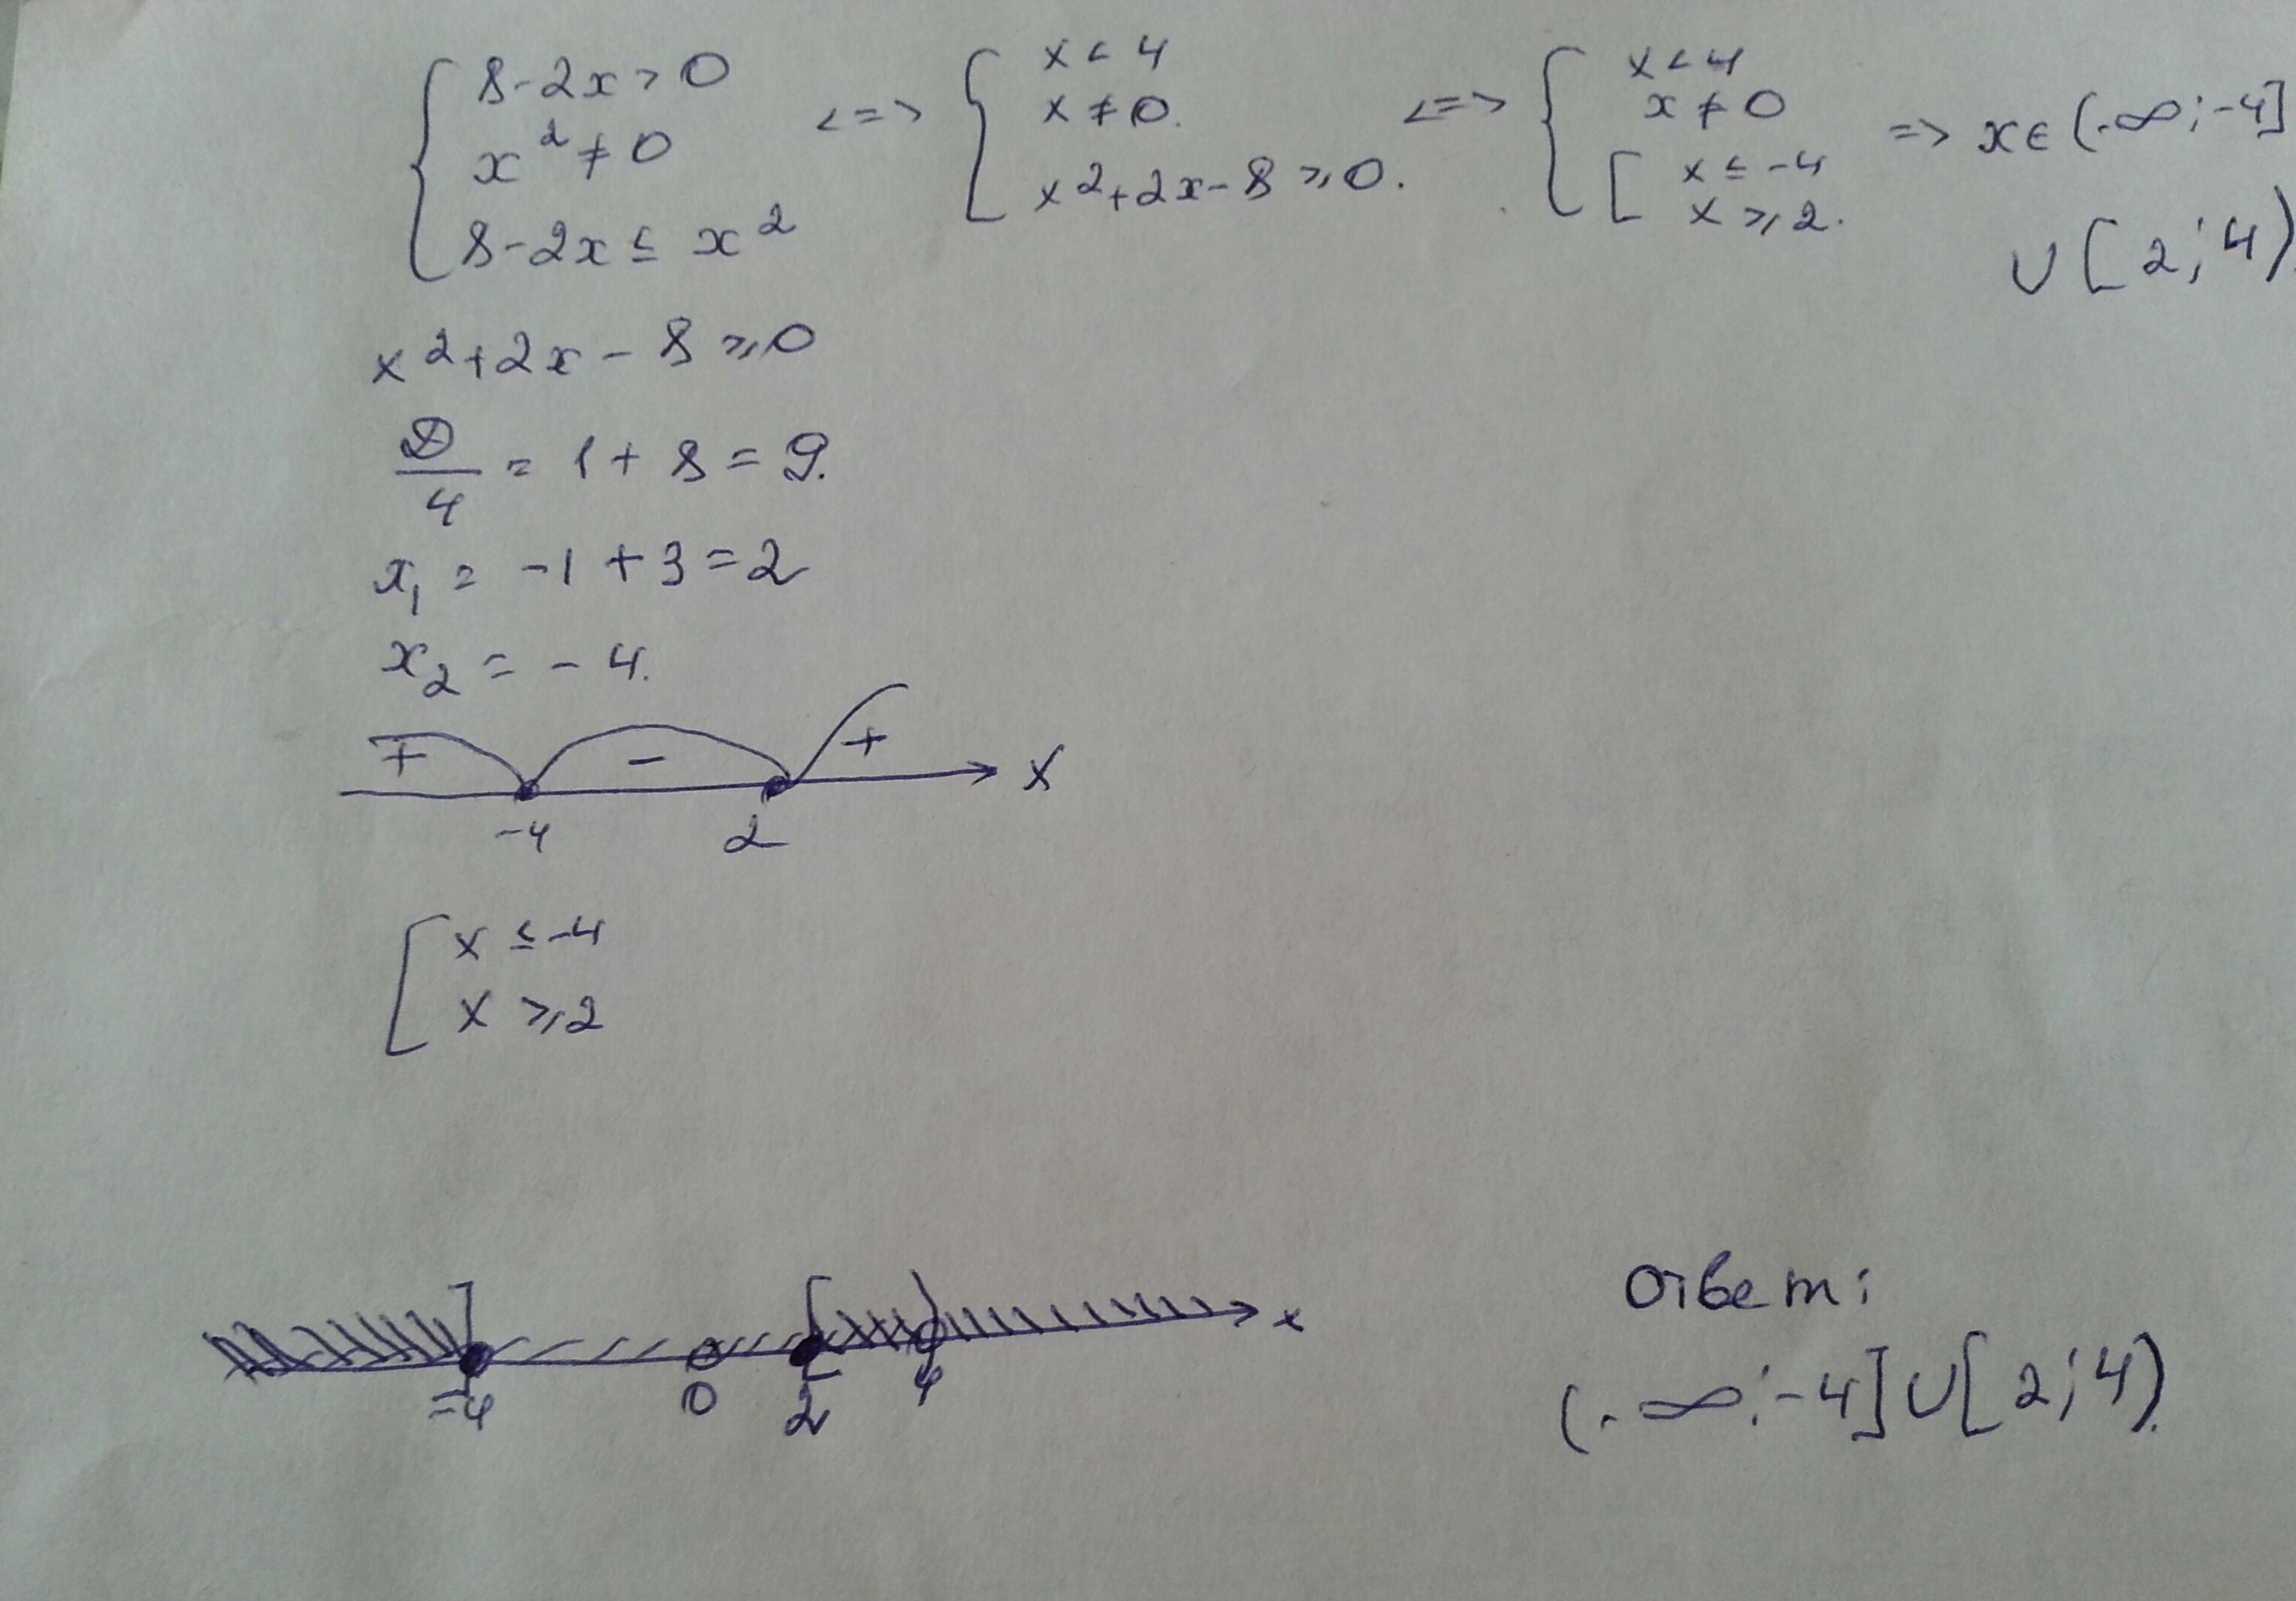 8-2x>0
x²≠0
8-2x≤x²
<=>
x<4
x≠0.
x²+2x-8≥0.
<=>
x<4
x≠0
x≤-4
x≥2.
=> x∈(-∞;-4]
∪[2;4)
x²+2x-8≥0
D/4=1+8=9.
x₁=-1+3=2
x₂=-4.
+ - + x
-4 2
x≤-4
x≥2
x
-4 0 2 4
Ответ:
(-∞;-4]∪[2;4).